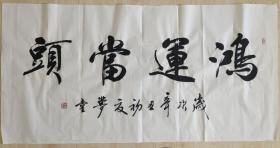 鴻運當頭
歲次辛丑初夏夢童